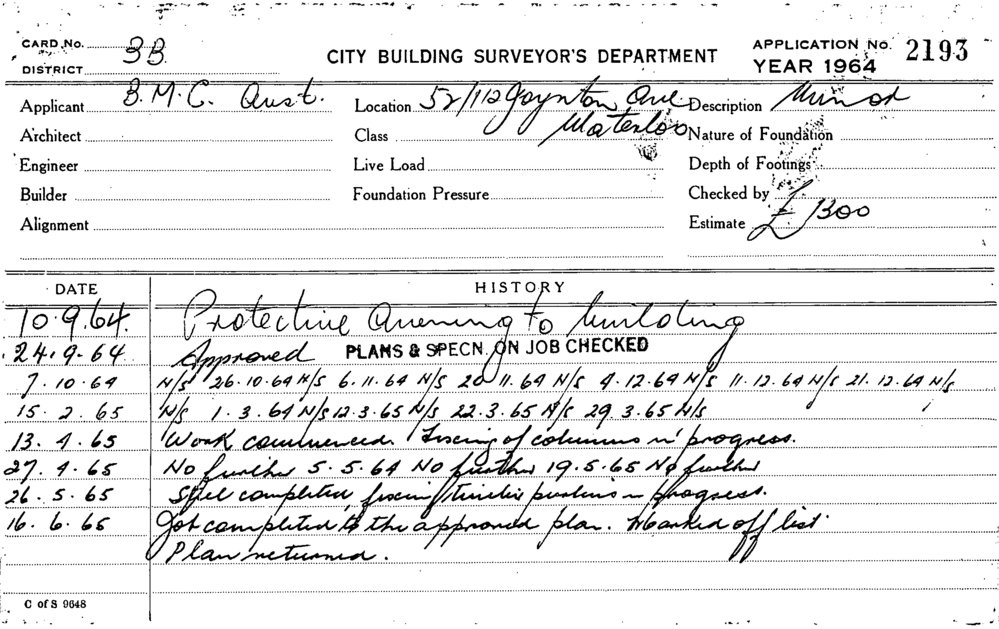 CARD No. 3B
DISTRICT
CITY BUILDING SURVEYOR'S DEPARTMENT
APPLICATION No. 2193
YEAR 1964
Applicant B.M.C. Aust. Location 52/112 Joynton Ave Description Minor
Architect Class Waterloo Nature of Foundation
Engineer Live Load Depth of Footings
Builder Foundation Pressure Checked by
Alignment Estimate £ 1300
DATE HISTORY
10.9.64. Protective Awening to building
24.9.64 Approved PLANS & SPECN. ON JOB CHECKED
7.10.64 N/S 26.10.64 N/S 6.11.64 N/S 20.11.64 N/S 4.12.64 N/S 11.12.64 N/S 21.12.64 N/S
15.2.65 N/S 1.3.64 N/S 12.3.65 N/S 22.3.65 N/S 29.3.65 N/S
13.4.65 Work commenced. Fixing of columns in progress.
27.4.65 No further 5.5.64 No further 19.5.65 No further
26.5.65 Steel completed fixing timber purlins in progress.
16.6.65 Job completed to the approved plan. Marked off list.
Plan returned.
C of S 9648